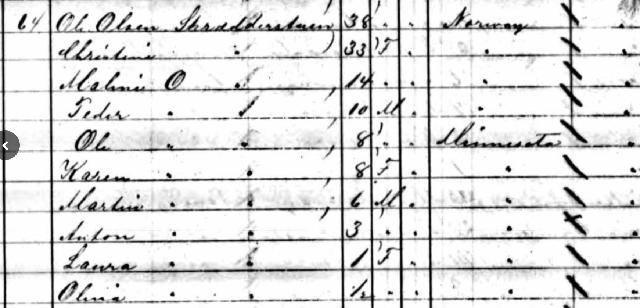 64 Ole Olsen Skrædderstuen 38 " " Norway
Christine " 33 F " "
Maline O " 14 " " "
Peder " " 10 M " "
Ole " " 8 " " Minnesota "
Karen " " 8 F " " "
Martin " " 6 M " " "
Anton " " 3 " " " "
Laura " " 1 F " " "
Olina " " ½ " " " "